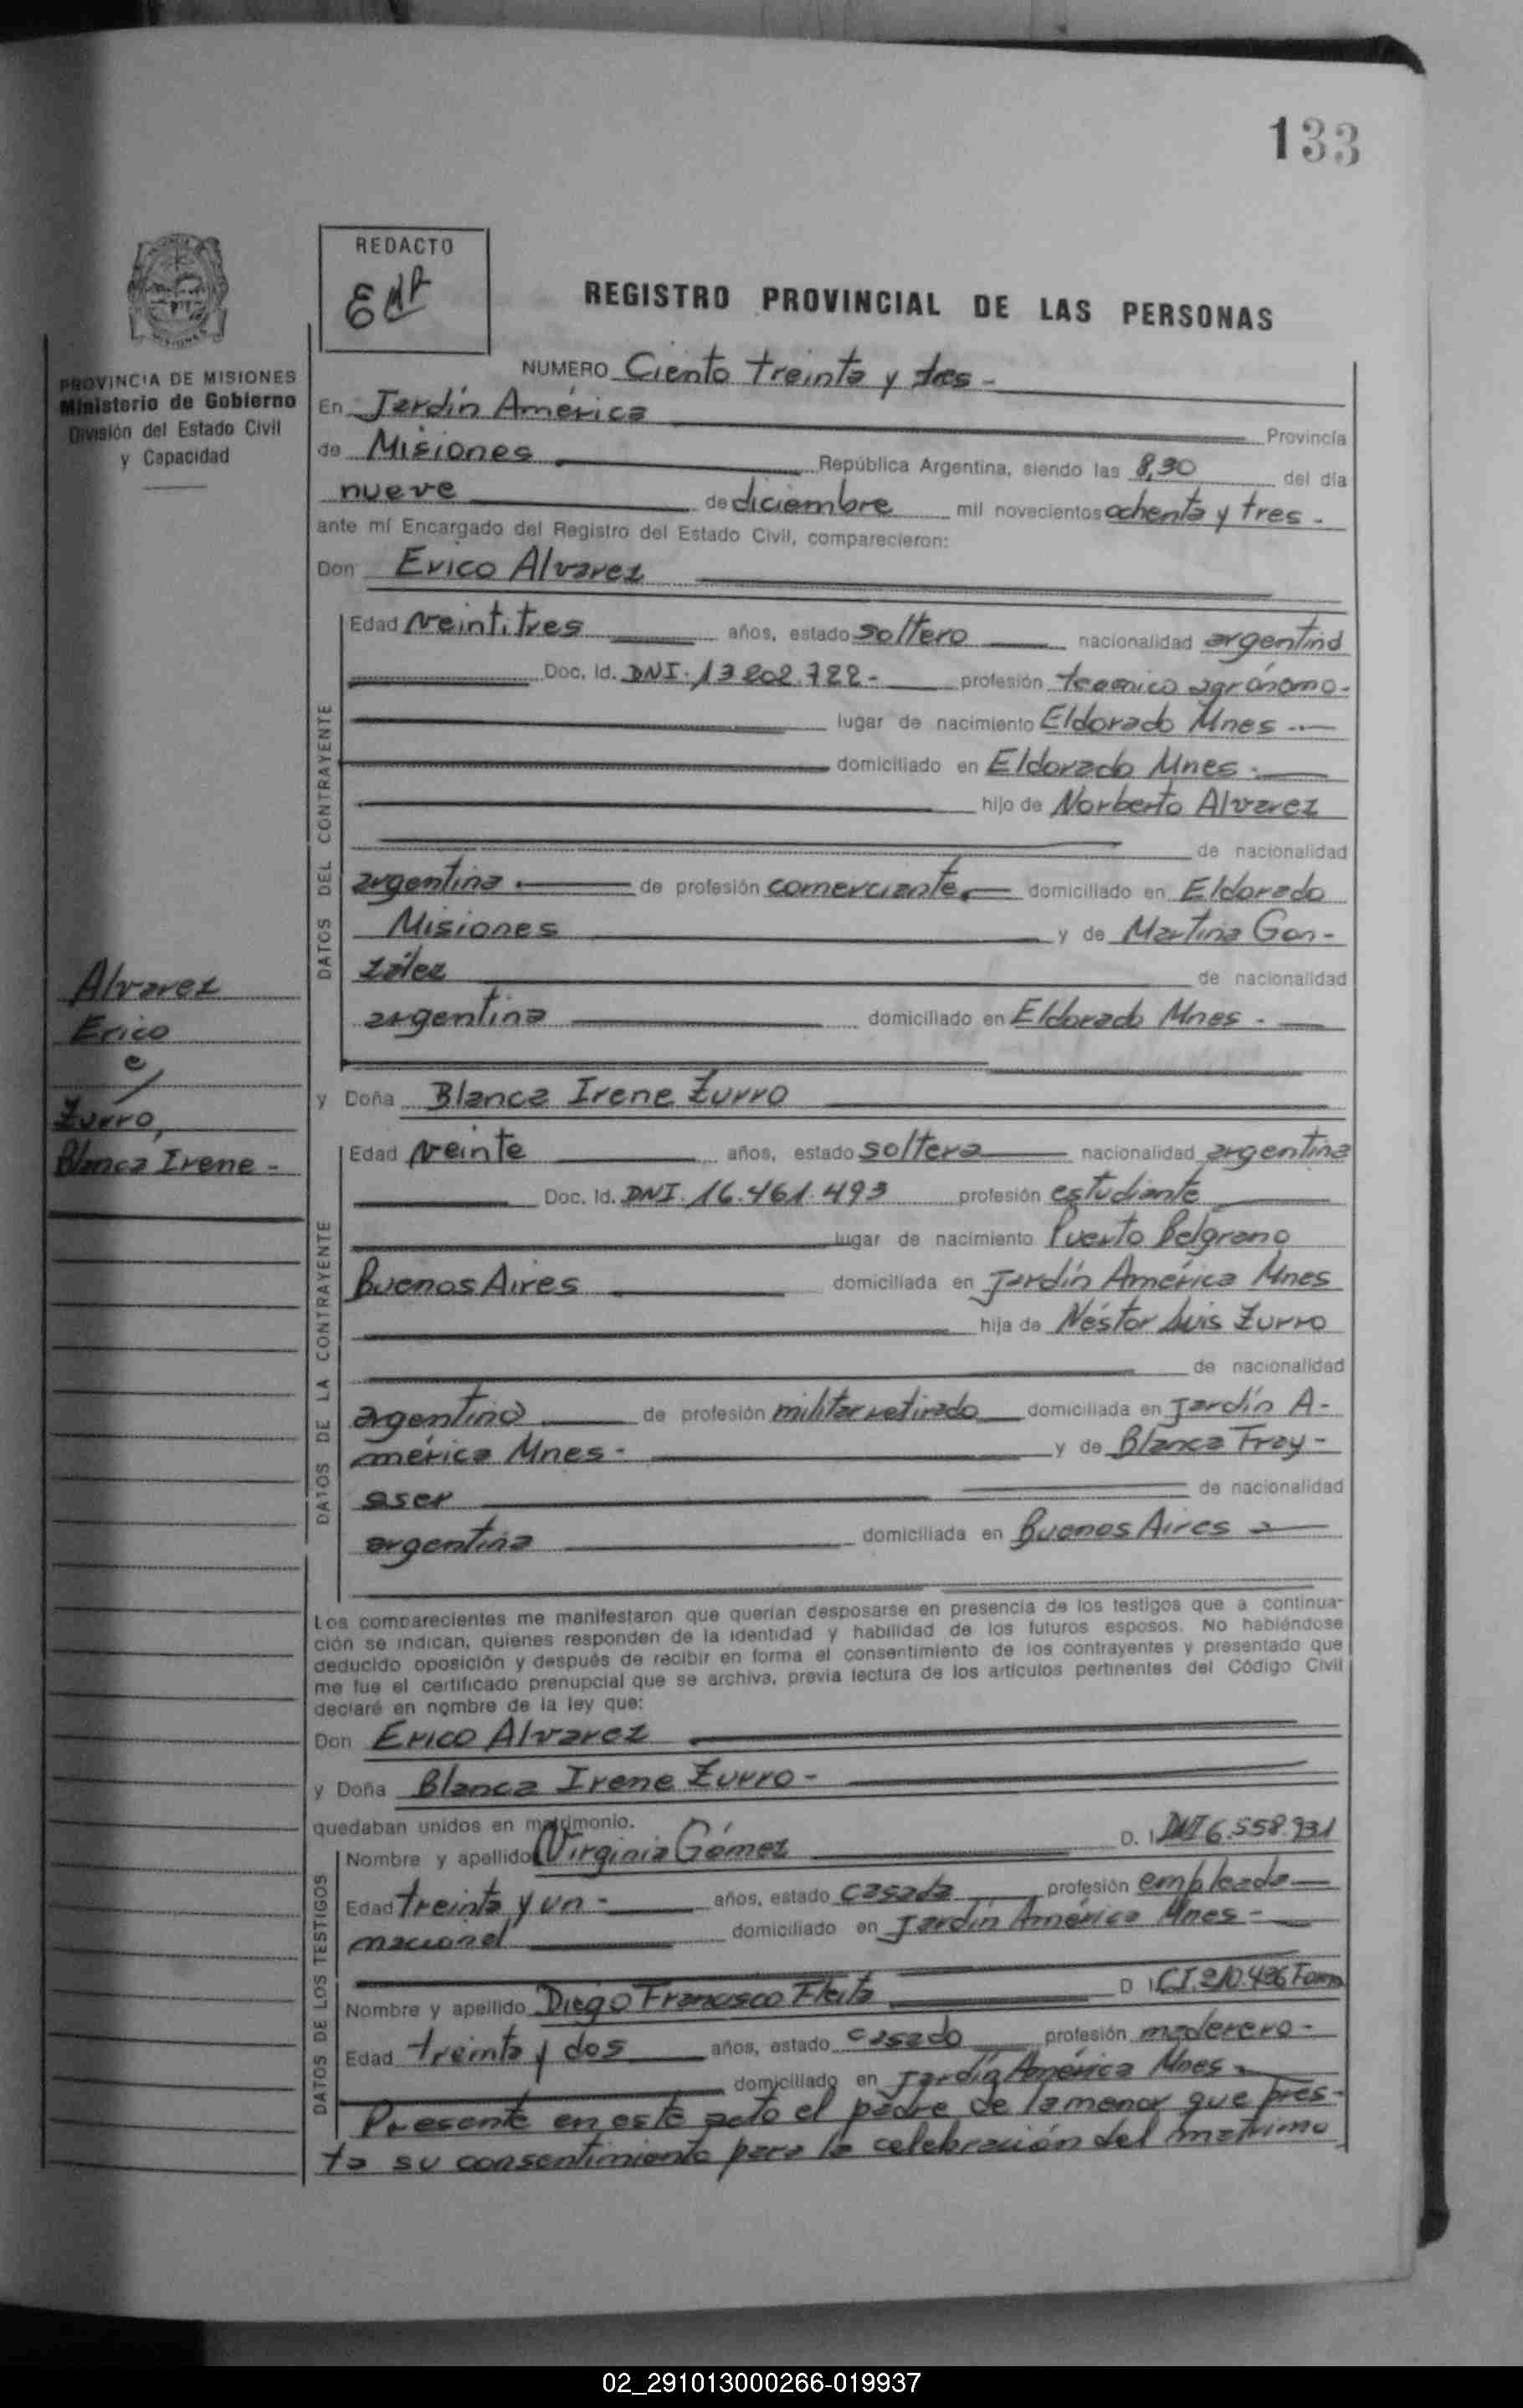 133
REDACTO
REGISTRO PROVINCIAL DE LAS PERSONAS
PROVINCIA DE MISIONES
Ministerio de Gobierno
División del Estado Civil
y Capacidad
NUMERO Ciento treinta y tres -
En Jardín América Provincia
de Misiones República Argentina, siendo las 8,30 del día
nueve de diciembre mil novecientos ochenta y tres -
ante mí Encargado del Registro del Estado Civil, comparecieron:
Don Erico Alvarez
DATOS DEL CONTRAYENTE
Edad veintitres años, estado soltero nacionalidad argentino
Doc. Id. DNI. 13.802.722- profesión agrónomo-
lugar de nacimiento Eldorado Mnes -
domiciliado en Eldorado Mnes -
hijo de Norberto Alvarez
de nacionalidad
argentina de profesión comerciante domiciliado en Eldorado
Misiones y de Martina Gon-
zález de nacionalidad
argentina domiciliado en Eldorado Mnes -
Alvarez
Erico
c/
Zurro,
Blanca Irene -
y Doña Blanca Irene Zurro
DATOS DE LA CONTRAYENTE
Edad veinte años, estado soltera nacionalidad argentina
Doc. Id. DNI. 16.461.493 profesión estudiante
lugar de nacimiento Puerto Belgrano
Buenos Aires domiciliada en Jardín América Mnes
hija de Néstor Luis Zurro
de nacionalidad
argentino de profesión militar retirado domiciliada en Jardín A-
mérica Mnes - y de Blanca Froy-
aser de nacionalidad
argentina domiciliada en Buenos Aires -
Los comparecientes me manifestaron que querían desposarse en presencia de los testigos que a continua-
ción se indican, quienes responden de la identidad y habilidad de los futuros esposos. No habiéndose
deducido oposición y después de recibir en forma el consentimiento de los contrayentes y presentado que
me fue el certificado prenupcial que se archiva, previa lectura de los artículos pertinentes del Código Civil
declaré en nombre de la ley que:
Don Erico Alvarez
y Doña Blanca Irene Zurro -
quedaban unidos en matrimonio.
DATOS DE LOS TESTIGOS
Nombre y apellido Virginia Gómez D. I. DNI 6.558.931
Edad treinta y un - años, estado casada profesión empleada
nacional domiciliado en Jardín América Mnes -
Nombre y apellido Diego Francisco Fleita D. I. C.I. 210.426 Fama
Edad treinta y dos años, estado casado profesión maderero -
domiciliado en Jardín América Mnes -
Presente en este acto el padre de la menor que pres-
ta su consentimiento para la celebración del matrimo
02_291013000266-019937